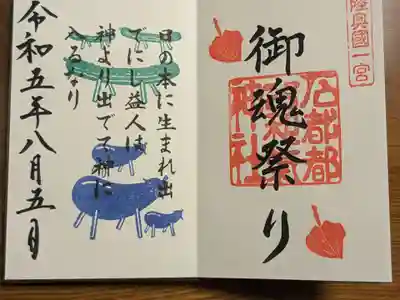 陸奥國一宮
御魂祭り
石都都
神社
日の本に生まれ出
でにし益人は
神より出でて神に
入るなり
令和五年八月五日